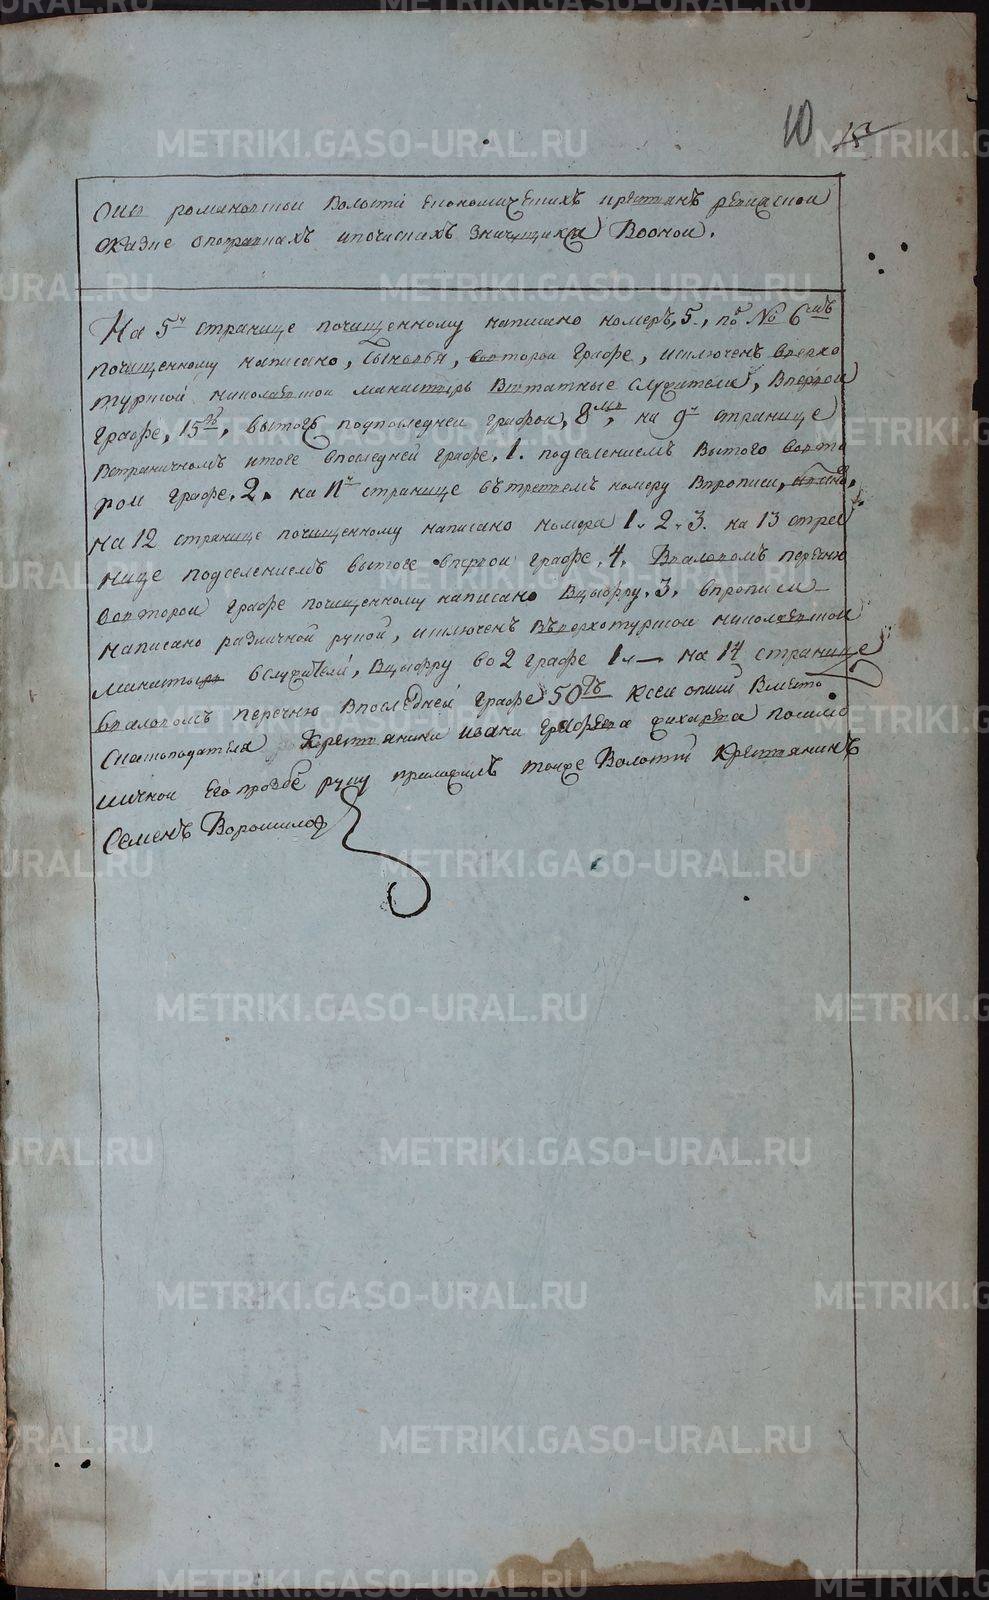 10 15
романовской волости економическихъ крестьянъ ревиской
сказке опоправкахъ ипочискахъ значущихся Вооной.
На 5й странице почищенному написано номеръ, 5., по № 6мъ
почищенному написано, Сыновья, вовторой графе, исключенъ Вверхо
турской николаевской манастырь Вштатные служители, Впервой
графе, 15ть, вытоге подпоследней графой, 8мь, на 9й странице
Встраничномъ итоге Впоследней графе, 1. подселениемъ Вытоге вовто
рой графе, 2, на 11й странице Втретьемъ номеру Впрописи,
на 12 странице почищенному написано номера 1. 2. 3. на 13 стра
нице подселениемъ вытоге впервой графе, 4. Вваловомъ перечню
вовторой графе почищенному написано Вцыфру, 3, впрописи
написано различной рукой, исключенъ Вверхотурской николаевской
манастырь вслужители, Вцыфру во 2 графе 1. — на 14 странице
Вваловомъ перечню Впоследней графе 50тъ Ксей описи Вместо
Сказкоподателя Крестьянина ивана
личной Его прозбе руку приложилъ тоеже Волости Крестьянинъ
Семенъ Ворошилов
METRIKI.GASO-URAL.RU